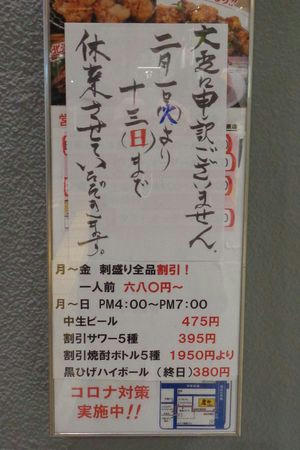 大変申し訳ございません。
二月一日(火)より
十三(日)まで
休業させていただきます。
月～金 刺盛り全品割引！
一人前 六八〇円～
月～日 PM4:00～PM7:00
中生ビール 475円
割引サワー5種 395円
割引焼酎ボトル5種 1950円より
黒ひげハイボール (終日)380円
コロナ対策
実施中!!